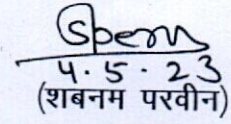 4.5.23
(शबनम परवीन)